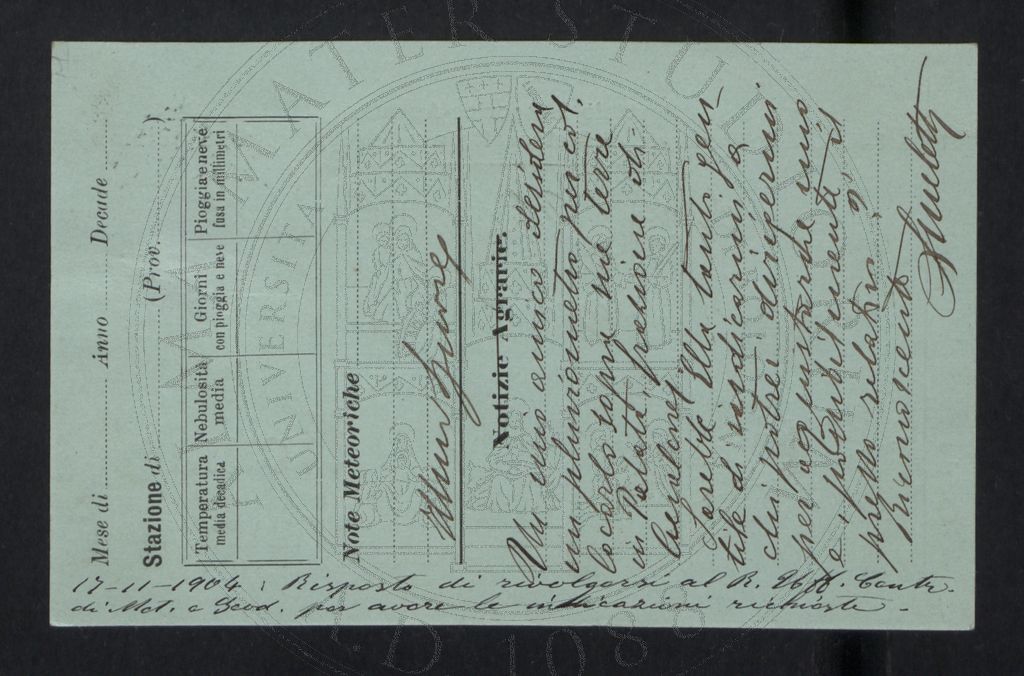 Mese di ........ Anno ........ Decade ........
Stazione di ........ (Prov. ........)
Temperatura media decadica
Nebulosità media
Giorni con pioggia e neve
Pioggia e neve fusa in millimetri
Note Meteoriche
Notizie Agrarie.
Un mio amico desidera
un pluviometro per col-
locarlo sopra una terra
in Patatà, frazione di
Sarebbe Ella tanto gen-
tile di indicarmi a
chi potrei dirigermi
per acquistarne uno
e possibilmente il
prezzo relativo?
Riconoscente
17-11-1904: Risposto di rivolgersi al R. Uff. Centr.
di Met. e Geod. per avere le indicazioni richieste.
ALMA MATER STUDIORUM
UNIVERSITÀ
A.D. 1088